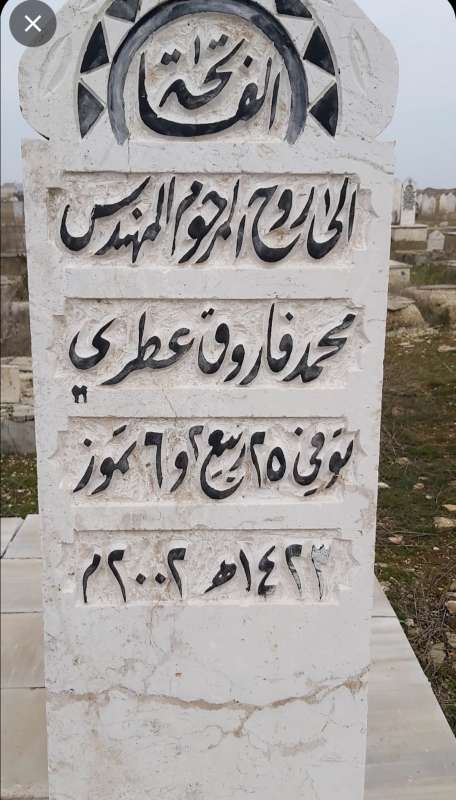 الفاتحة
الى روح المرحوم المهندس
محمد فاروق عطري
توفي ٢٥ ربيع٢ و٦ تموز
١٤٢٣هـ ٢٠٠٢م